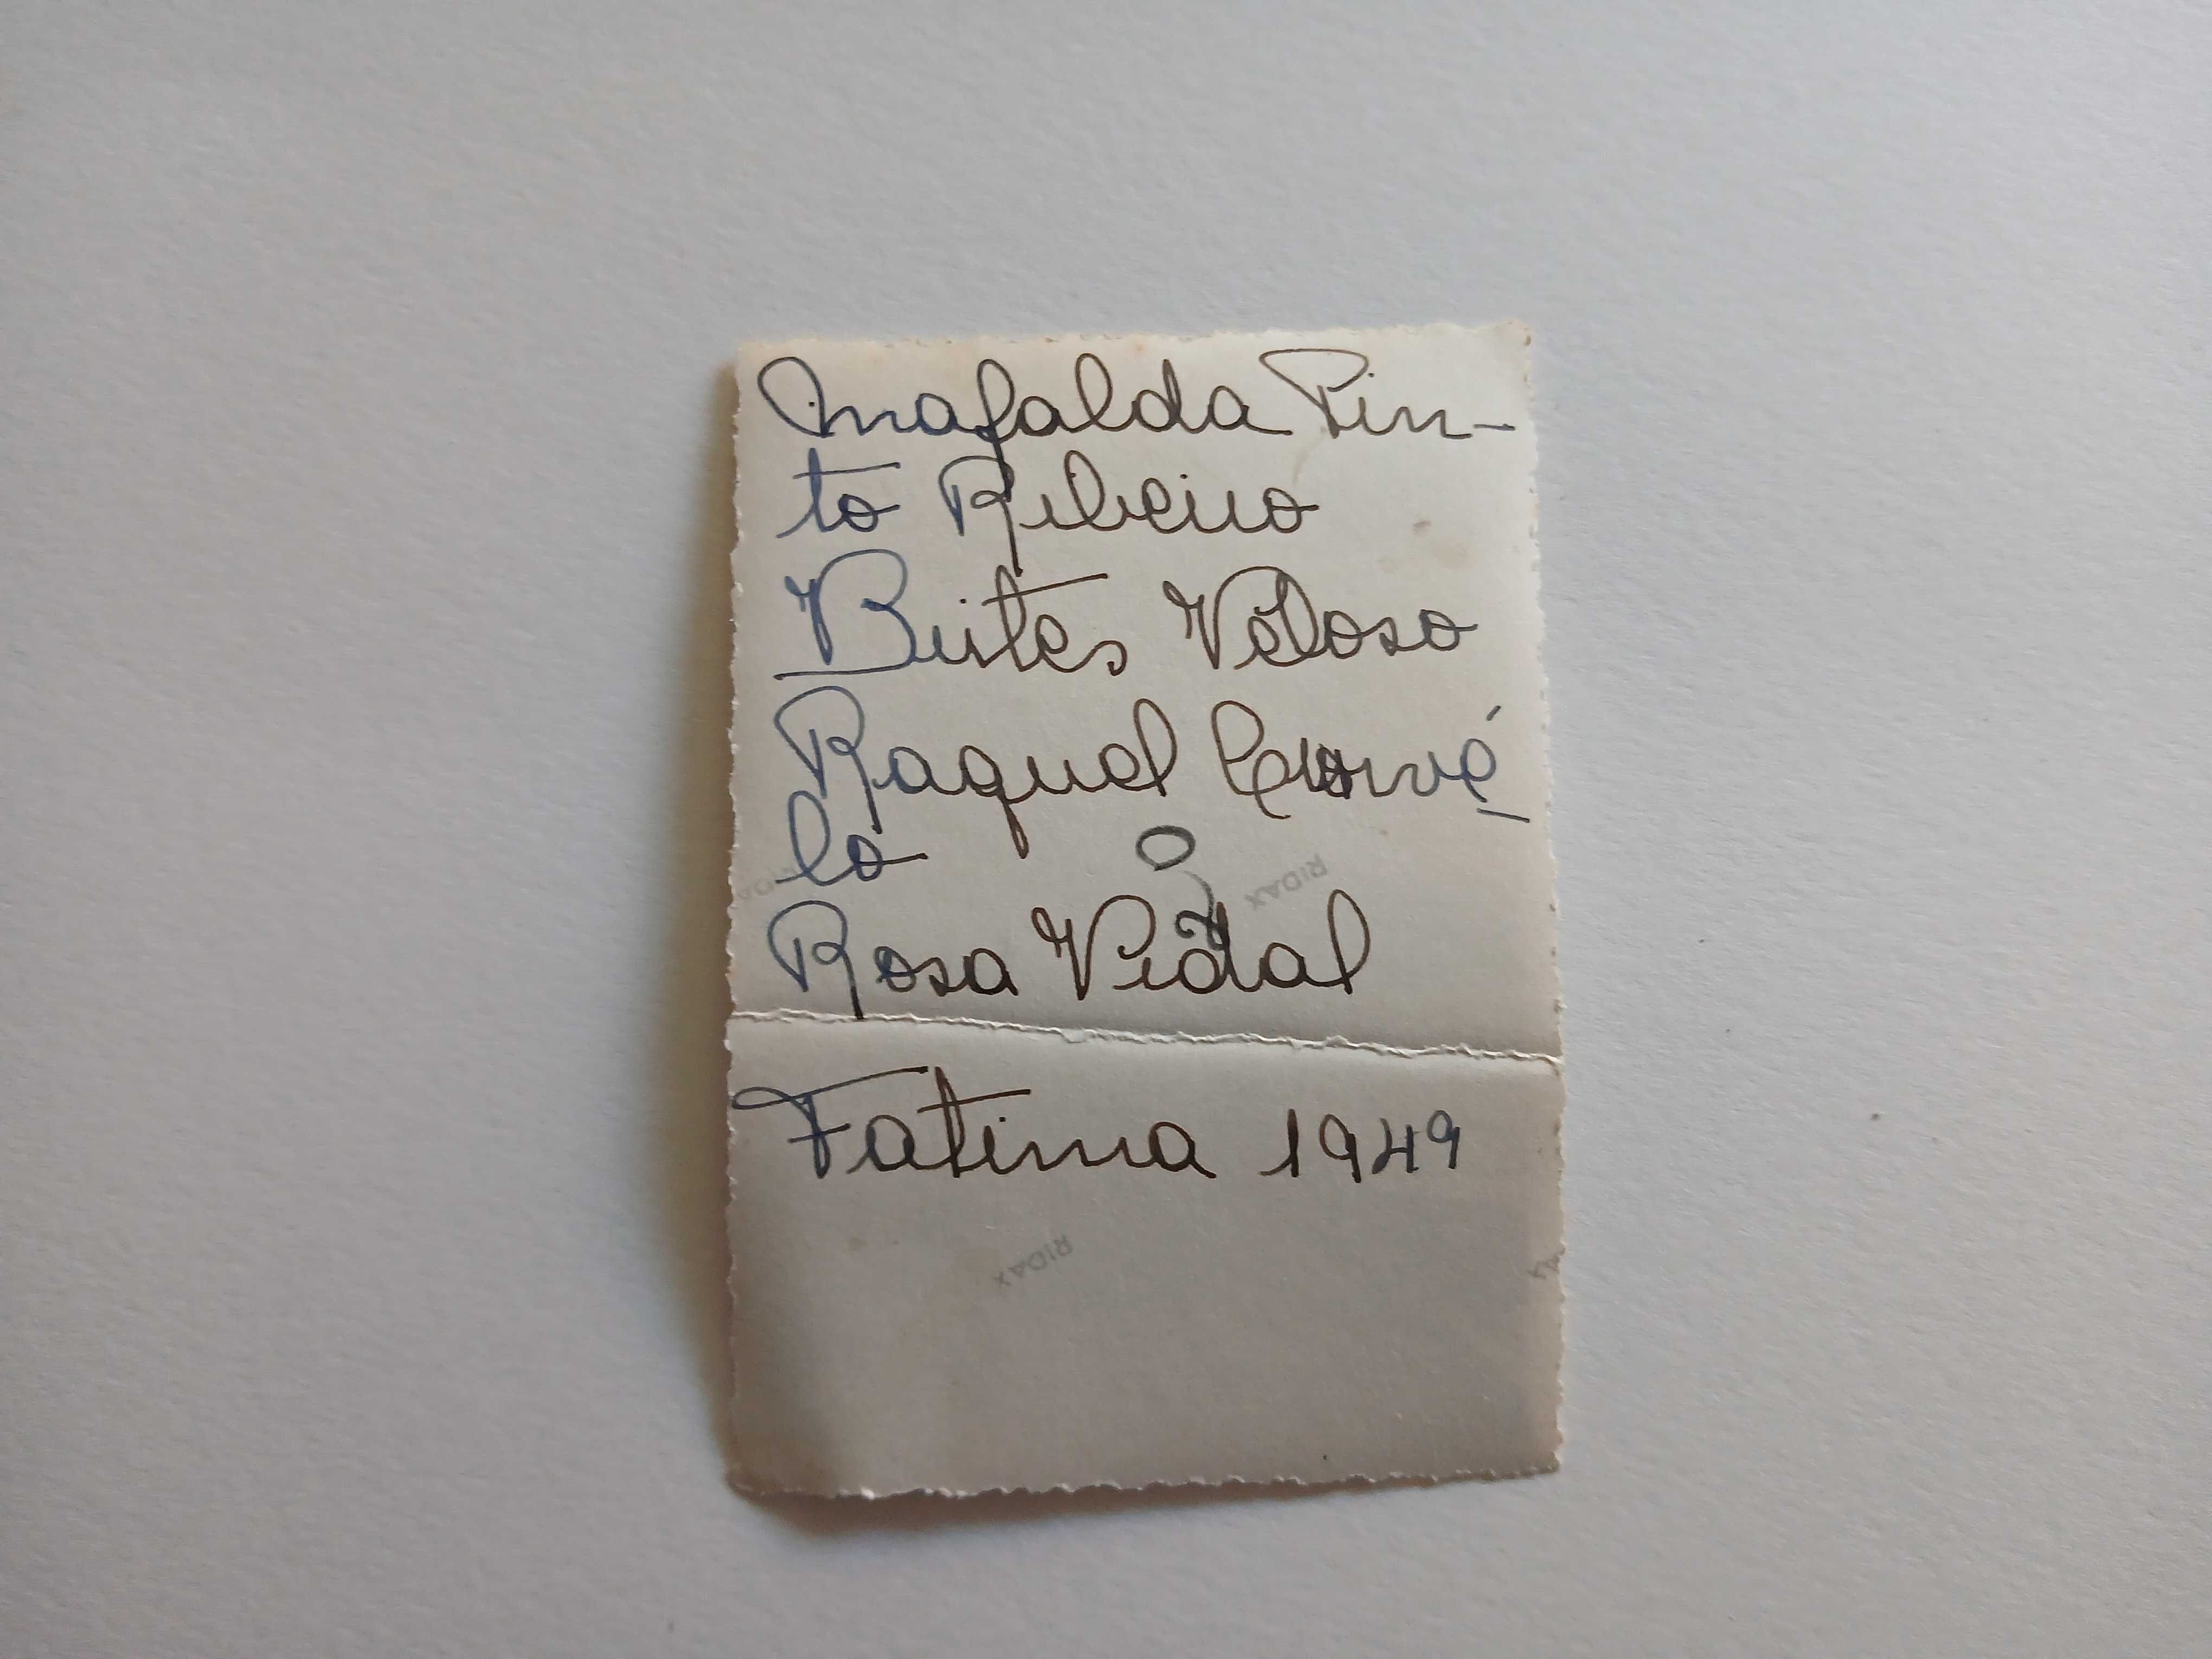 Mafalda Pin-
to Ribeiro
Brites Veloso
Raquel
lo
RIDAX
Rosa Vidal
Fatima 1949
RIDAX